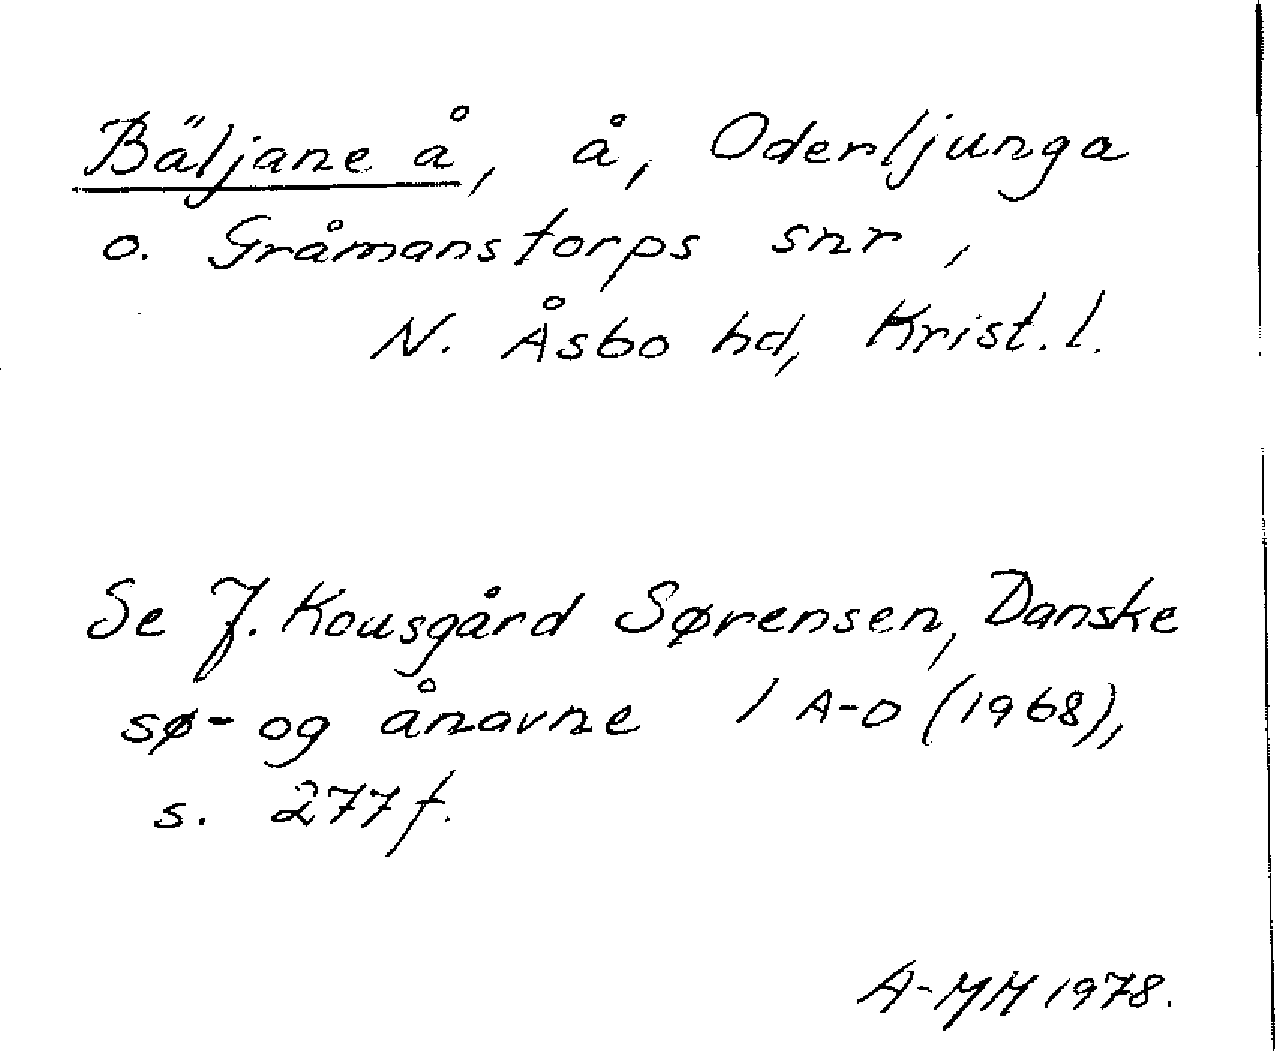 Bäljane å, å, Oderljunga
o. Gråmanstorps snr,
N. Åsbo hd, Krist. l.
Se J. Kousgård Sørensen, Danske
sø- og ånavne I A-O (1968),
s. 277 f.
A-MM 1978.